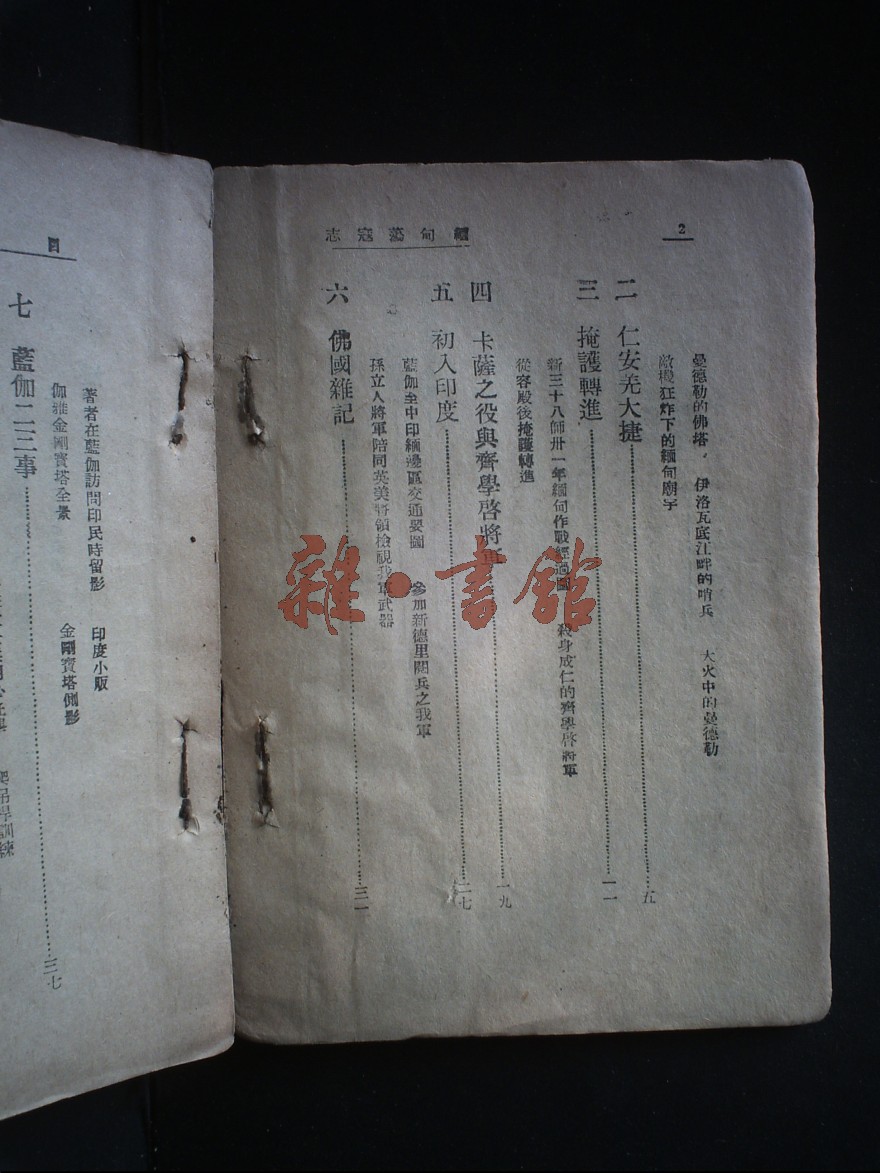 2
緬甸蕩寇志
曼德勒的佛塔，伊洛瓦底江畔的哨兵 大火中的曼德勒
敵機狂炸下的緬甸廟宇
二 仁安羌大捷……五
三 掩護轉進……一一
新三十八師卅一年緬甸作戰經過圖 殺身成仁的齊學啓將軍
從容殿後掩護轉進
四 卡薩之役與齊學啓將軍……一九
五 初入印度……二七
藍伽至中印緬邊區交通要圖 參加新德里閱兵之我軍
孫立人將軍陪同英美將領檢視我軍武器
六 佛國雜記……三一
目
著者在藍伽訪問印民時留影 印度小販
伽雅金剛寶塔全景 金剛寶塔側影
七 藍伽二三事……三七
訓練
雜·書館